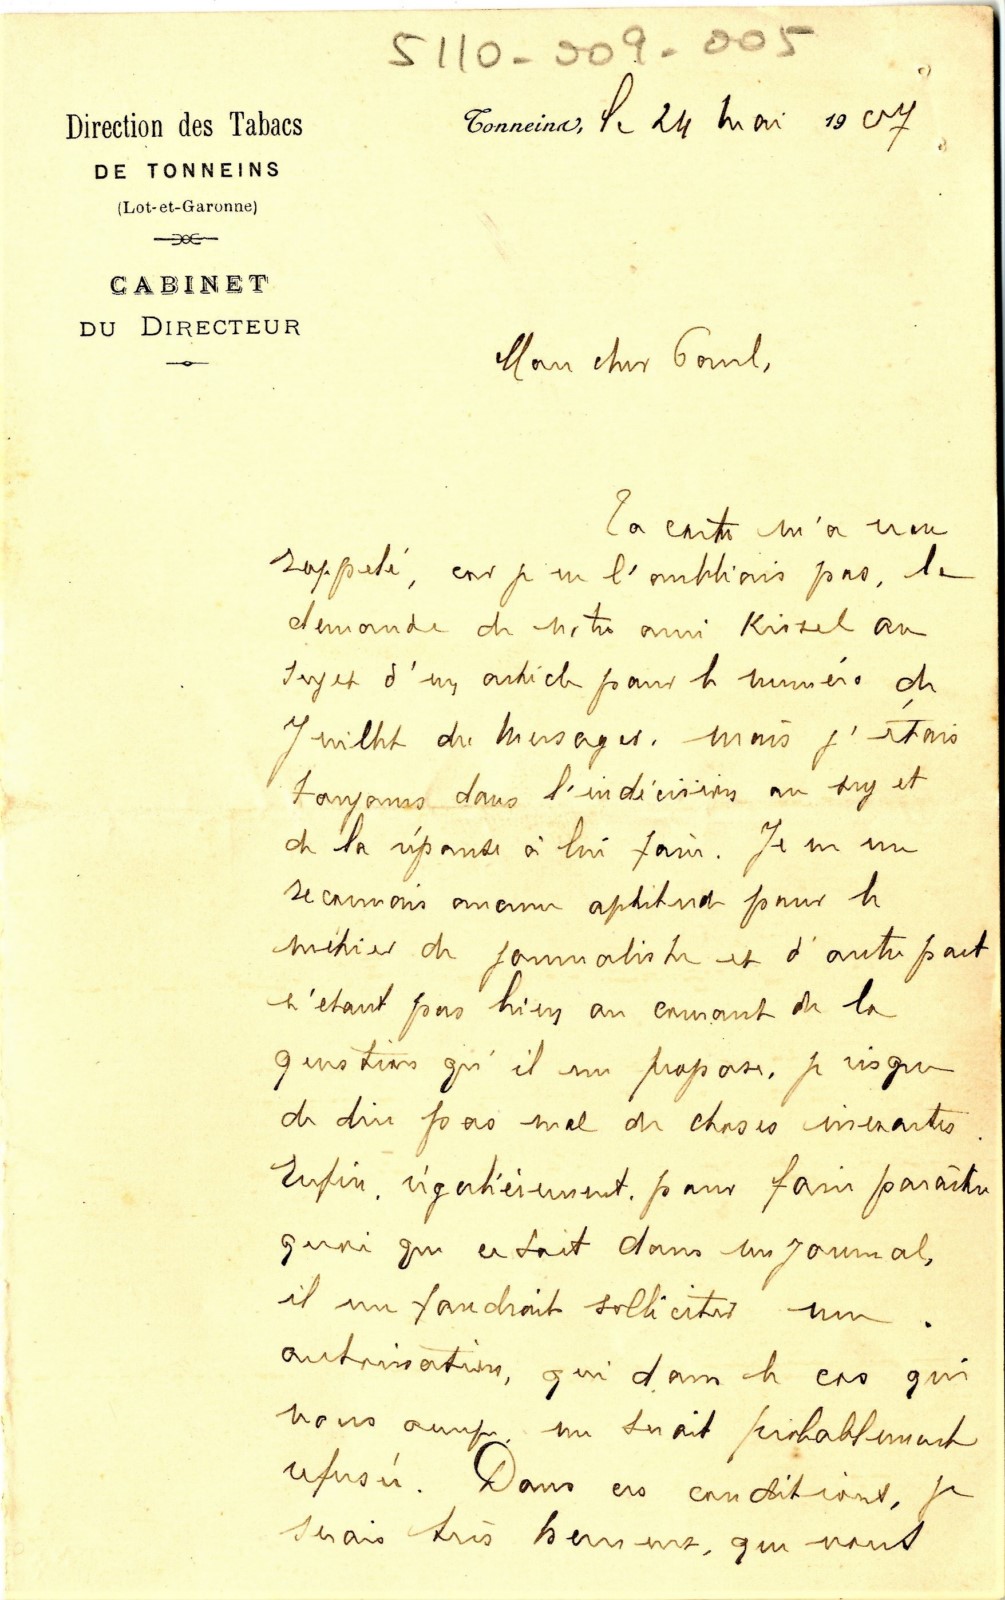 5110-009-005
Direction des Tabacs
DE TONNEINS
(Lot-et-Garonne)
CABINET
DU DIRECTEUR
Tonneins, le 24 Mai 1907
Mon cher Paul,
Ta carte m'a
rappelé, car je ne l'oubliais pas, la
demande de notre ami Kissel au
sujet d'un article pour le numéro de
Juillet du Messager. mais j'étais
toujours dans l'indécision au sujet
de la réponse à lui faire. Je ne me
reconnais aucune aptitude pour le
métier de journaliste et d'autre part
n'étant pas bien au courant de la
question qu'il me propose, je risque
de dire pas mal de choses inexactes.
Enfin, régulièrement, pour faire paraître
quoi que ce soit dans un journal,
il me faudrait solliciter une
autorisation, qui dans le cas qui
nous occupe, me serait probablement
refusée. Dans ces conditions, je
serais très heureux, que vous